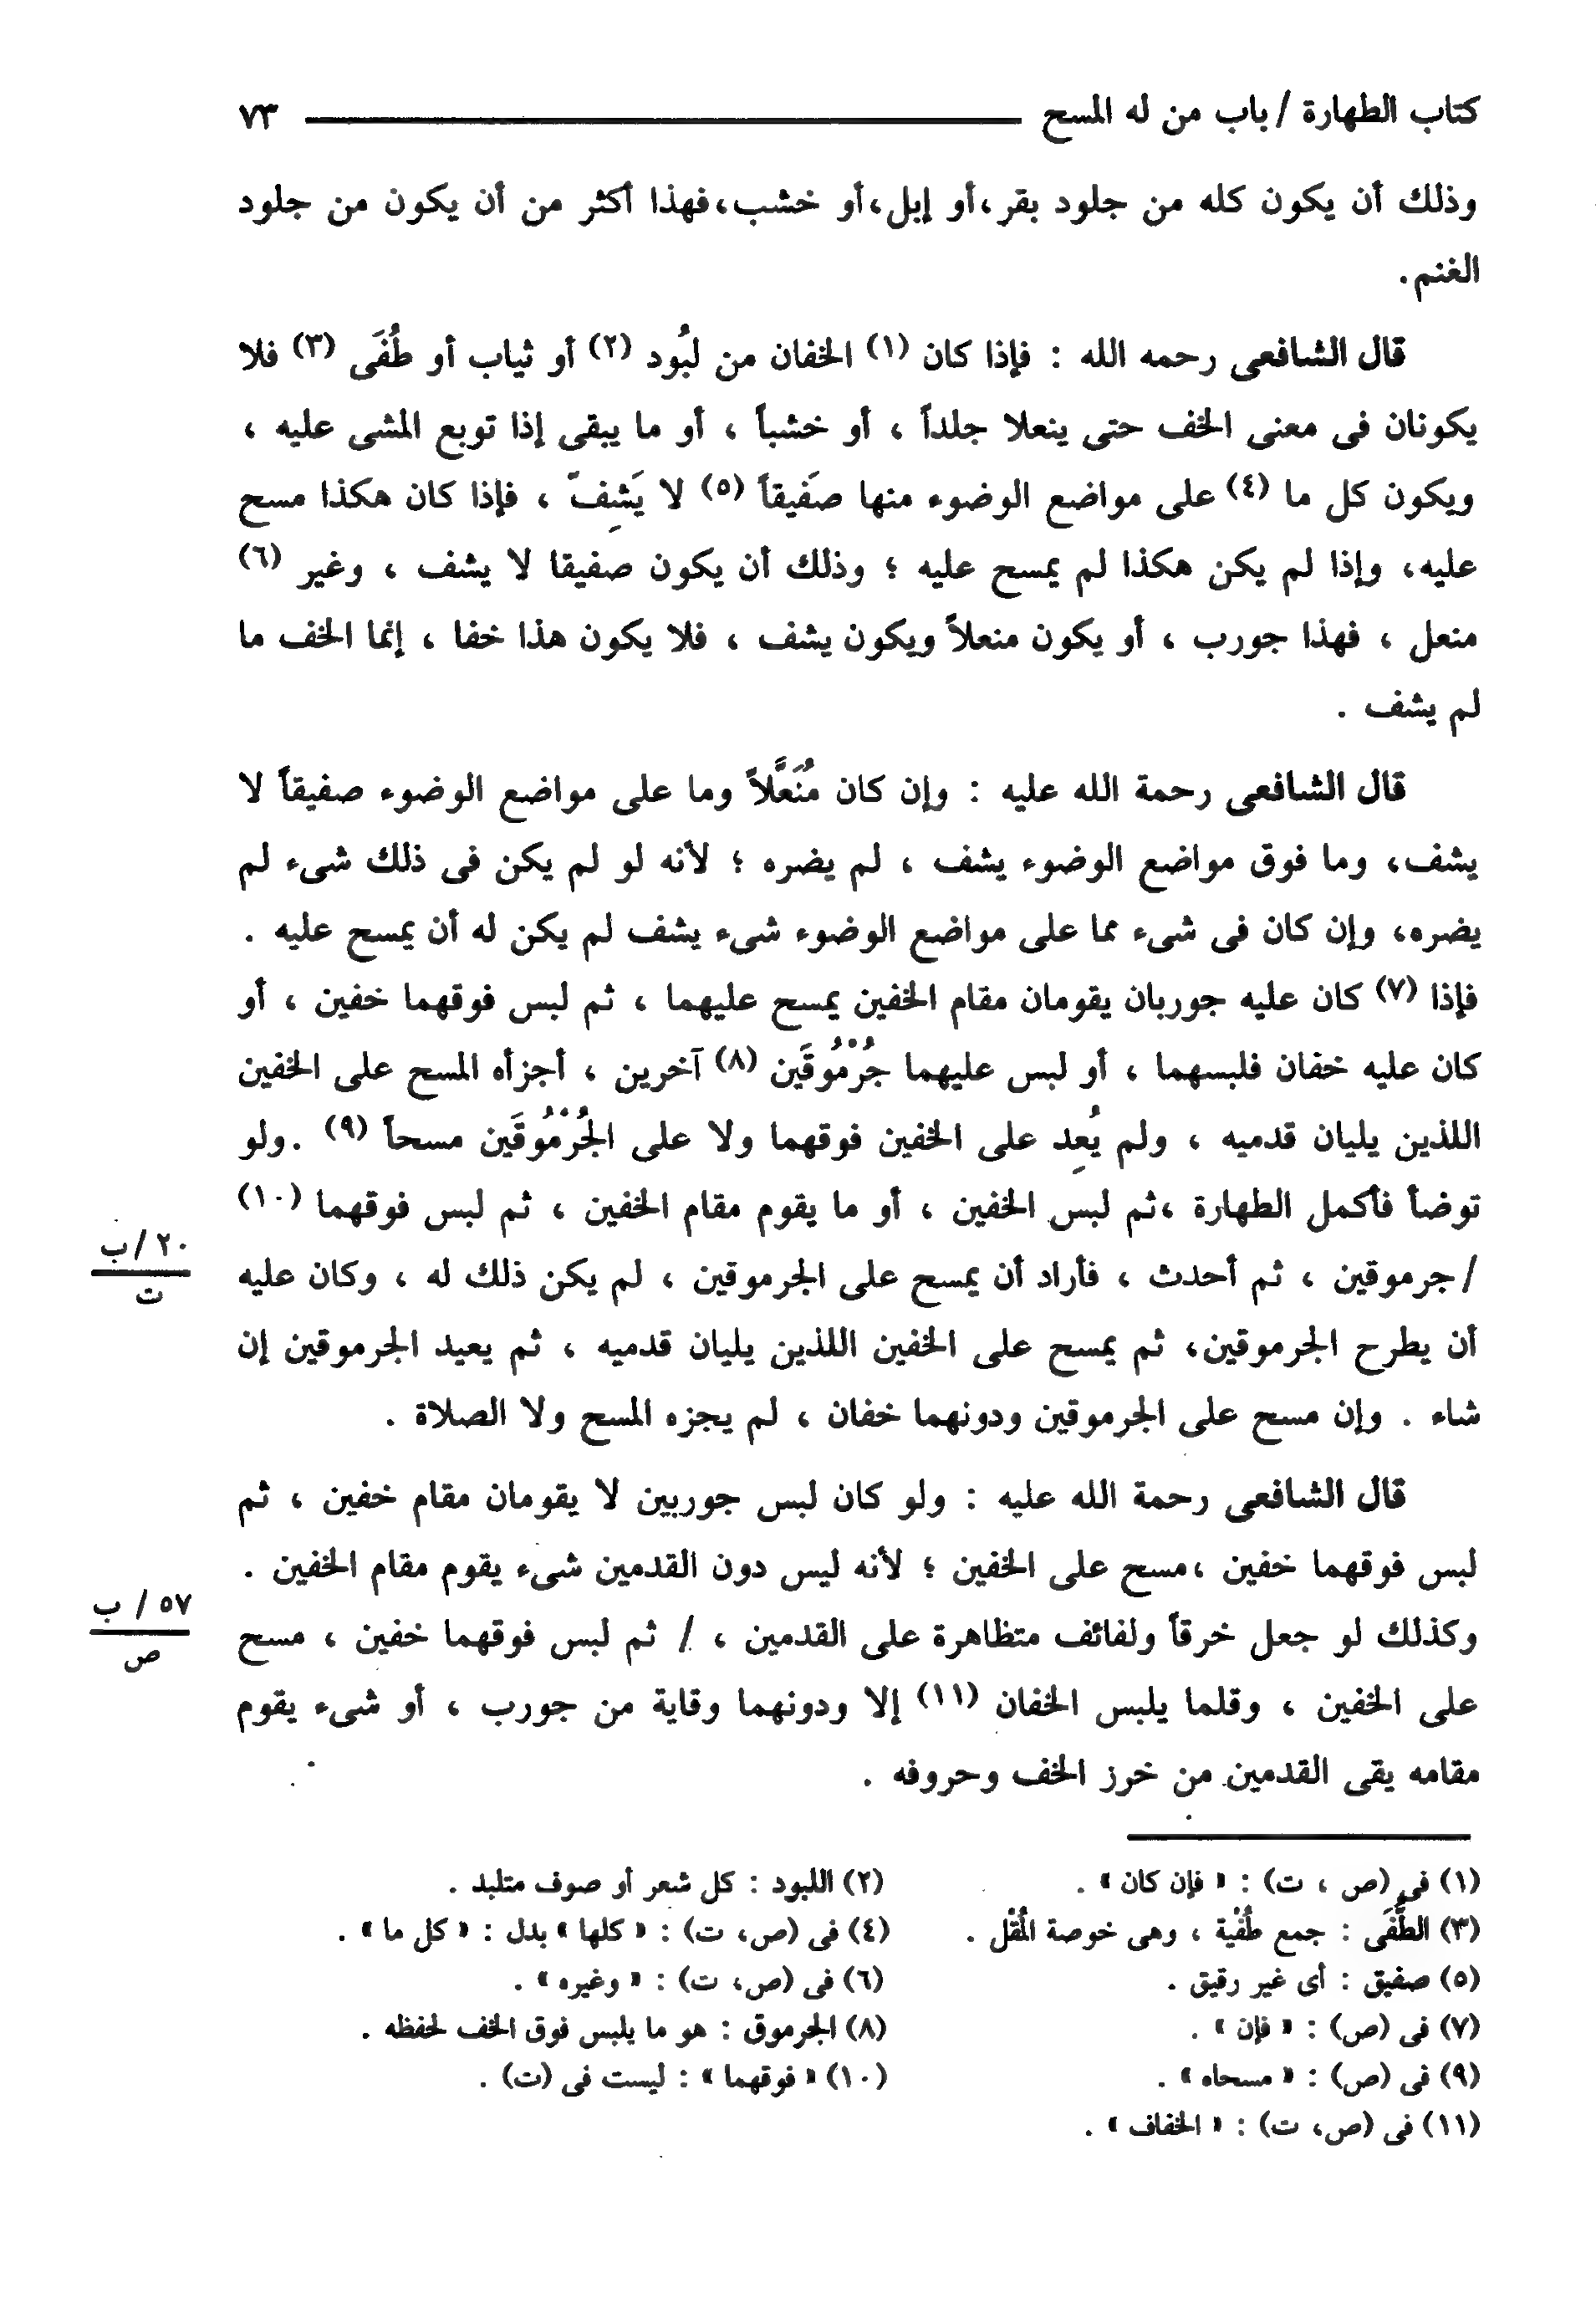 كتاب الطهارة / باب من له المسح ٧٣
وذلك أن يكون كله من جلود بقر،أو إبل،أو خشب،فهذا أكثر من أن يكون من جلود
الغنم.
قال الشافعى رحمه الله : فإذا كان (١) الخفان من لبُود (٢) أو ثياب أو طُفَى (٣) فلا
يكونان فى معنى الخف حتى ينعلا جلداً ، أو خشباً ، أو ما يبقى إذا توبع المشى عليه ،
ويكون كل ما (٤) على مواضع الوضوء منها صَفيقاً (٥) لا يَشِفّ ، فإذا كان هكذا مسح
عليه، وإذا لم يكن هكذا لم يمسح عليه ؛ وذلك أن يكون صفيقا لا يشف ، وغير (٦)
منعل ، فهذا جورب ، أو يكون منعلاً ويكون يشف ، فلا يكون هذا خفا ، إنما الخف ما
لم يشف .
قال الشافعى رحمة الله عليه : وإن كان مُنَعَّلاً وما على مواضع الوضوء صفيقاً لا
يشف، وما فوق مواضع الوضوء يشف ، لم يضره ؛ لأنه لو لم يكن فى ذلك شىء لم
يضره، وإن كان فى شىء مما على مواضع الوضوء شىء يشف لم يكن له أن يمسح عليه .
فإذا (٧) كان عليه جوربان يقومان مقام الخفين يمسح عليهما ، ثم لبس فوقهما خفين ، أو
كان عليه خفان فلبسهما ، أو لبس عليهما جُرْمُوقَين (٨) آخرين ، أجزأه المسح على الخفين
اللذين يليان قدميه ، ولم يُعِد على الخفين فوقهما ولا على الجُرْمُوقَين مسحاً (٩) .ولو
توضأ فأكمل الطهارة ،ثم لبس الخفين ، أو ما يقوم مقام الخفين ، ثم لبس فوقهما (١٠)
/ جرموقين ، ثم أحدث ، فأراد أن يمسح على الجرموقين ، لم يكن ذلك له ، وكان عليه
٢٠ /ب
ت
أن يطرح الجرموقين، ثم يمسح على الخفين اللذين يليان قدميه ، ثم يعيد الجرموقين إن
شاء . وإن مسح على الجرموقين ودونهما خفان ، لم يجزه المسح ولا الصلاة .
قال الشافعى رحمة الله عليه : ولو كان لبس جوربين لا يقومان مقام خفين ، ثم
لبس فوقهما خفين ،مسح على الخفين ؛ لأنه ليس دون القدمين شىء يقوم مقام الخفين .
وكذلك لو جعل خرقاً ولفائف متظاهرة على القدمين ، / ثم لبس فوقهما خفين ، مسح
٥٧ / ب
ص
على الخفين ، وقلما يلبس الخفان (١١) إلا ودونهما وقاية من جورب ، أو شىء يقوم
مقامه يقى القدمين من خرز الخف وحروفه .
(١) فى (ص ، ت) : « فإن كان » .
(٢) اللبود : كل شعر أو صوف متلبد .
(٣) الطُّفَى : جمع طُفْيَة ، وهى خوصة المُقْل .
(٤) فى (ص، ت) : « كلها » بدل : « كل ما » .
(٥) صفيق : أى غير رقيق .
(٦) فى (ص، ت) : « وغيره » .
(٧) فى (ص) : « فإن » .
(٨) الجرموق : هو ما يلبس فوق الخف لحفظه .
(٩) فى (ص) : « مسحاه » .
(١٠) « فوقهما » : ليست فى (ت) .
(١١) فى (ص، ت) : « الخفاف » .